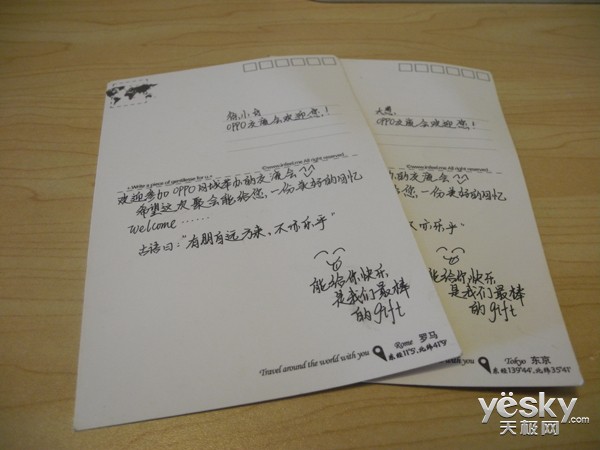 OPPO交流会欢迎您!
Write a piece of gentleness for u
All right reserved
欢迎参加OPPO同城举办的交流会
希望这次聚会能给您,一份美好的回忆
welcome ……
古语曰:"有朋自远方来,不亦乐乎"
能给你快乐
是我们最棒
的gift
Travel around the world with you
Rome 罗马
东经11°5',北纬41°9'
OPPO交流会欢迎您!
All right reserved
办的交流会
,一份美好的回忆
不亦乐乎"
能给你快乐
是我们最棒
的gift
with you
Tokyo 东京
东经139°44',北纬35°41'
yësky.com
天极网